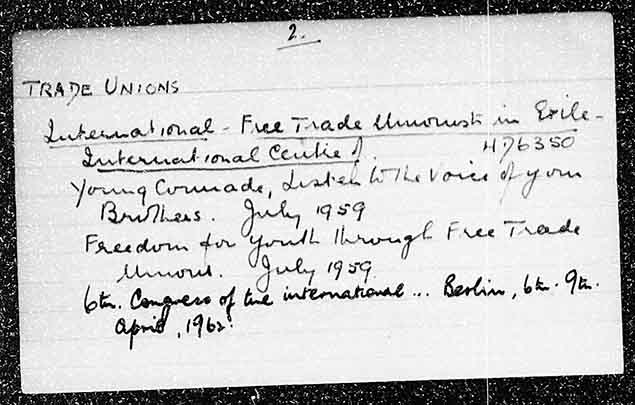 2.
TRADE UNIONS
International - Free Trade Unionists in Exile -
International Centre of.
476350
Young Comrade, Listen to the Voice of your
Brothers. July 1959
Freedom for Youth through Free Trade
Unions. July 1959.
6th. Congress of the international... Berlin, 6th. 9th.
April, 1962.